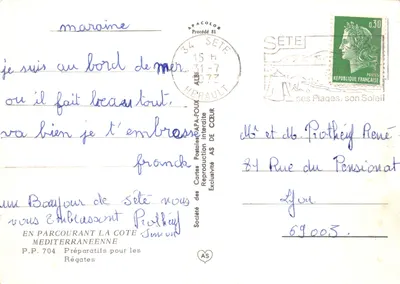 maraine
je suis au bord de mer
ou il fait beau tout
va bien je t'embrasse
franck
un Bonjour de Sète nous
vous Embrassont
EN PARCOURANT LA COTE
MEDITERRANEENNE
P.P. 704 Préparatifs pour les
Régates
APACOLOR
Procédé 85
Société des Cartes Postales APA-POUX - ALBI
Reproduction interdite
Exclusivité AS DE CŒUR
AS
34 SETE
15 H
31-7
HERAULT
SETE
ses Plages, son Soleil
0,30
POSTES
REPUBLIQUE FRANÇAISE
Mr et M Protheiy René
81 Rue du Pensionat
Lyon
69003